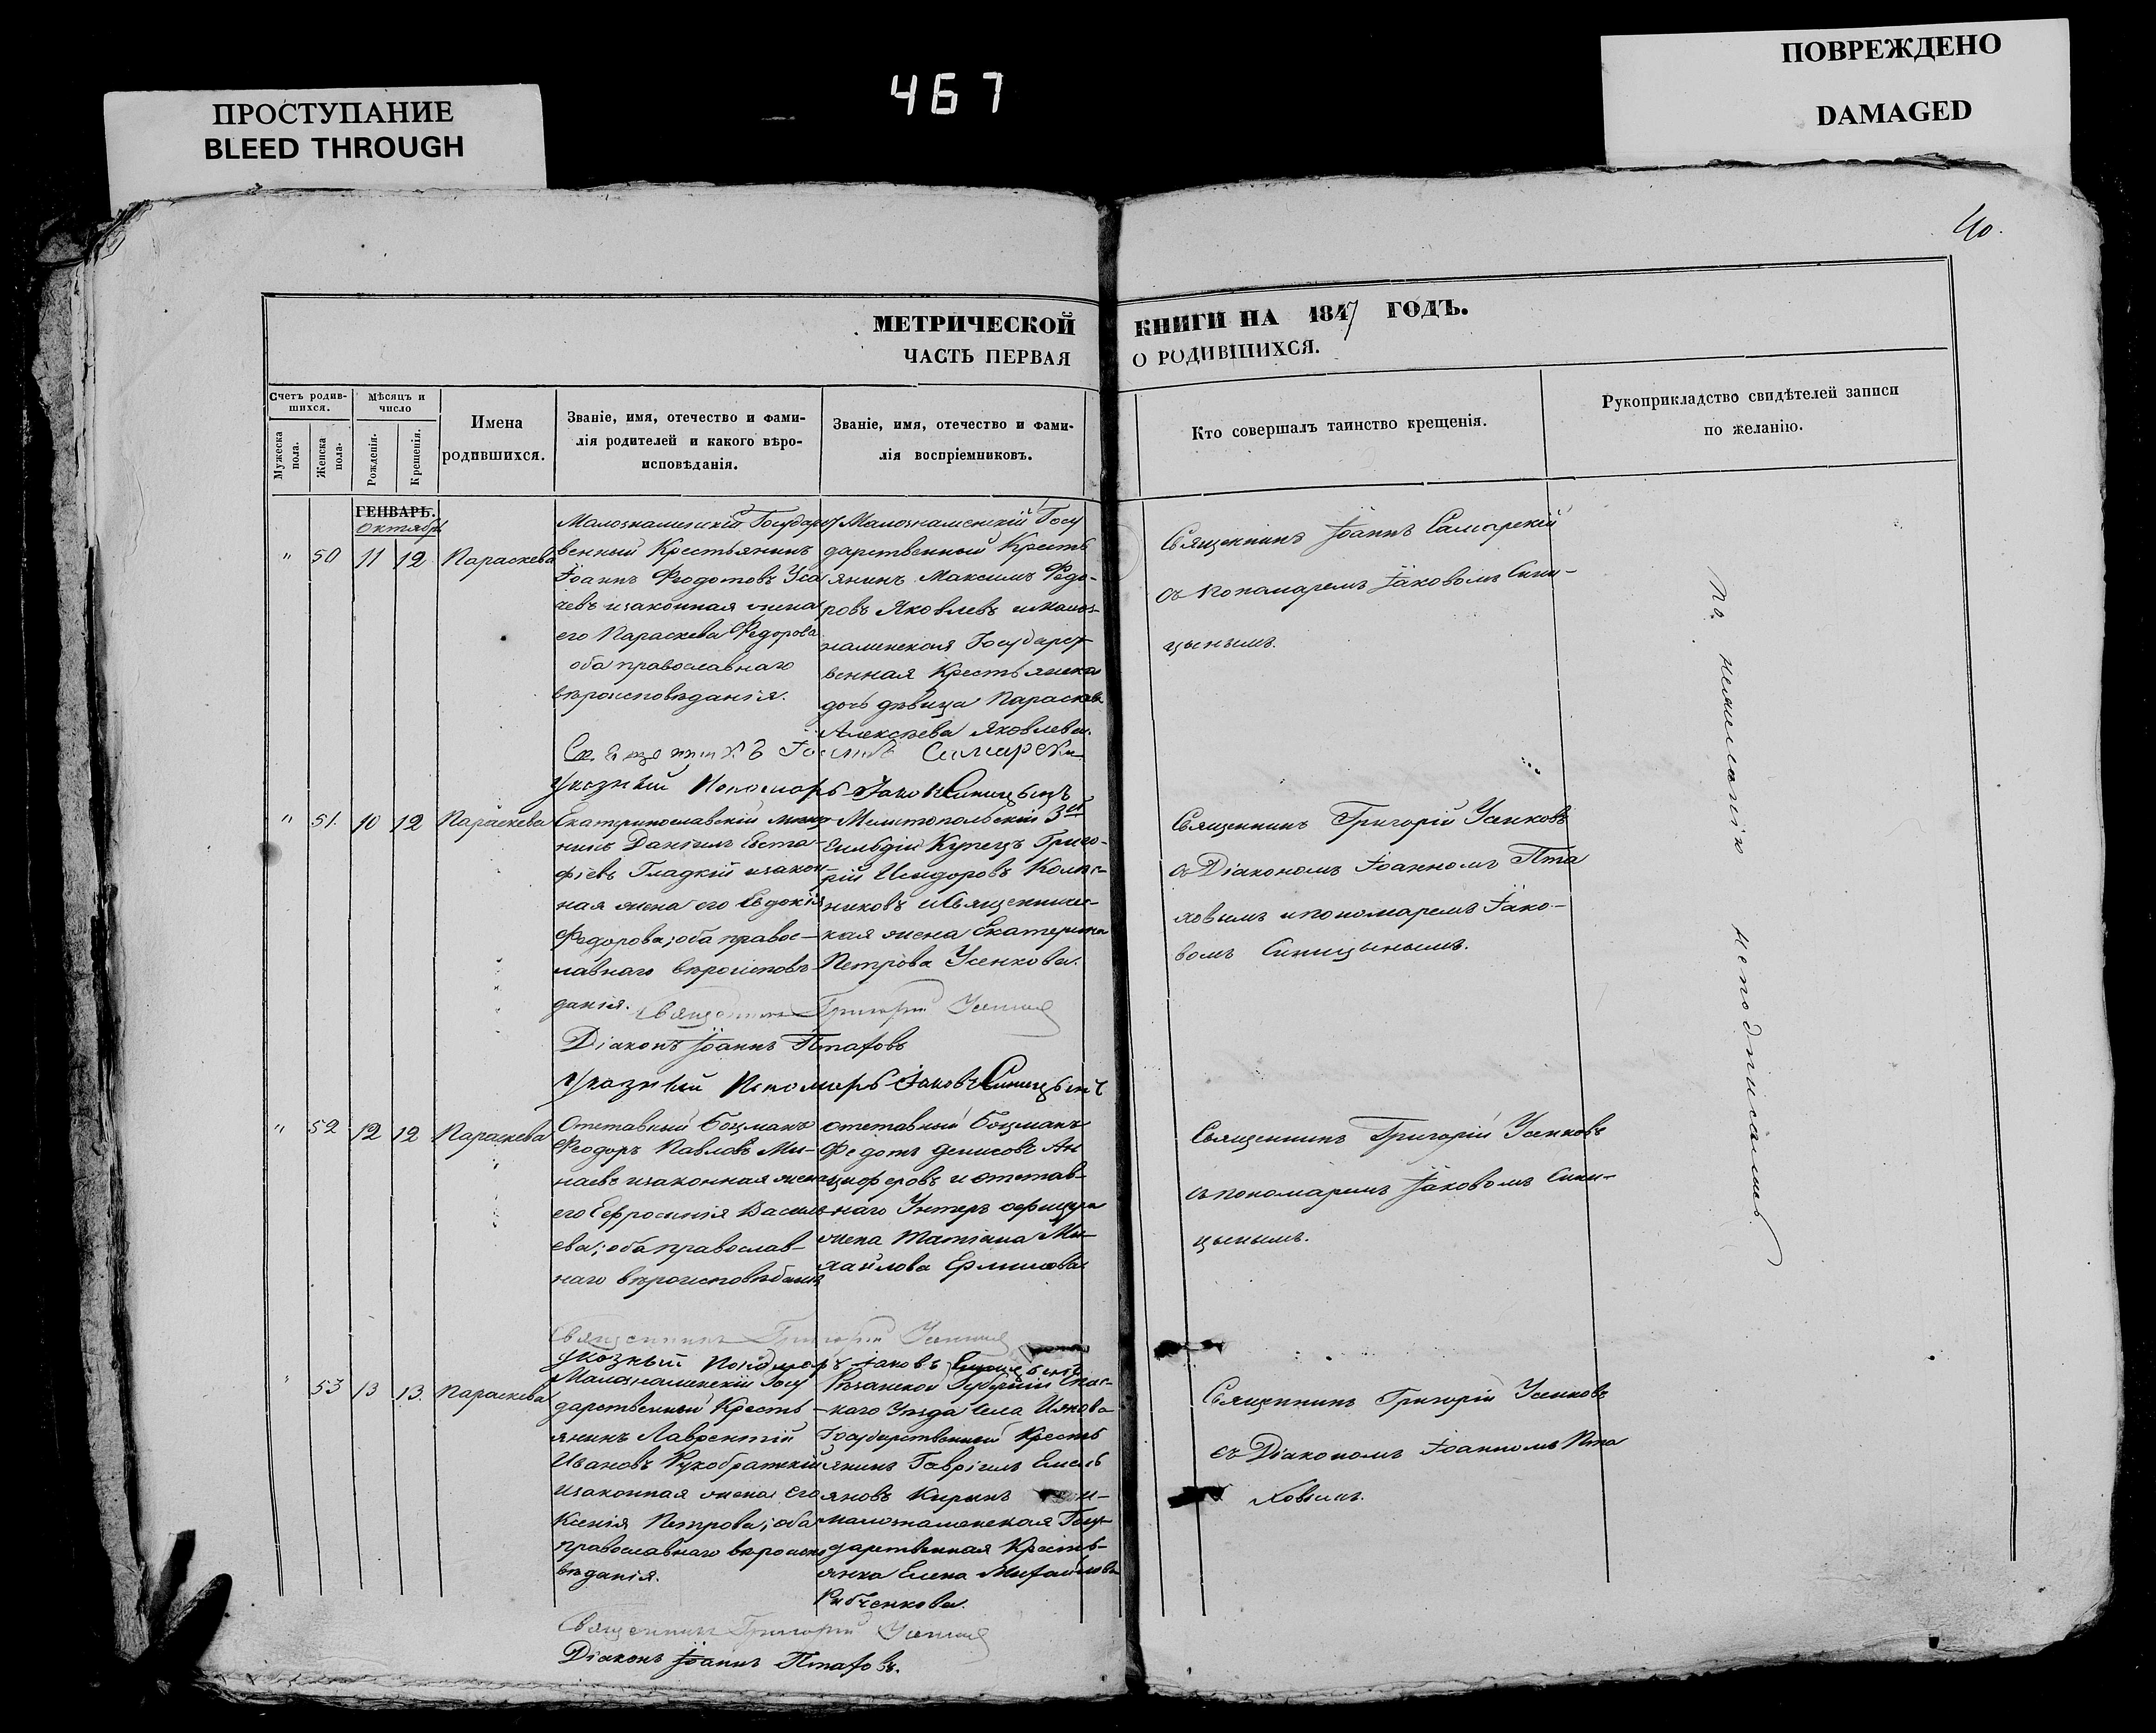 ПРОСТУПАНИЕ
BLEED THROUGH
467
ПОВРЕЖДЕНО
DAMAGED
40.
МЕТРИЧЕСКОЙ КНИГИ НА 1847 ГОДЪ.
ЧАСТЬ ПЕРВАЯ О РОДИВШИХСЯ.
Счетъ родив-
шихся.
Мужеска
пола.
Женска
пола.
Мѣсяцъ и
число
Рожденія.
Крещенія.
Имена
родившихся.
Званіе, имя, отечество и фами-
лія родителей и какого вѣро-
исповѣданія.
Званіе, имя, отечество и фами-
лія воспріемниковъ.
Кто совершалъ таинство крещенія.
Рукоприкладство свидѣтелей записи
по желанію.
ГЕНВАРЬ.
Октябрь
" 50 11 12 Параскева
Малознаменскій Государст
венный Крестьянинъ
Іоаннъ Феодотовъ Уса
чевъ изаконная жена
его Параскева Федорова
оба православнаго
вѣроисповѣданія.
Малознаменскій Госу
дарственный Кресть
янинъ Максимъ Федо-
ровъ Яковлевъ ималоз-
наменская Государст
венная Крестьянска
дочь дѣвица Параскева
Алексѣева Яковлева.
Священникъ Іоаннъ Самарскій
съ пономаремъ Іаковомъ Сини-
цынымъ.
Священникъ Іоаннъ Самарскій
Указный Пономарь Іаковъ Синицынъ
" 51. 10 12 Параскева
Екатеринославскій мѣща-
нинъ Даніилъ Евста-
фіевъ Гладкій изакон-
ная жена его Евдокія
Федорова; оба правос-
лавнаго вѣроисповѣ-
данія.
Мелитопольскій 3ей
Гильдіи Купецъ Григо-
рій Исидоровъ Колес-
никовъ иСвященничес-
кая жена Екатерина
Петрова Усенкова.
Священникъ Григорій Усенковъ
съ Діакономъ Іоанномъ Пта
ховымъ ипономаремъ Іако-
вомъ Синицынымъ.
Священникъ Григорій Усенковъ
Діаконъ Іоаннъ Птаховъ
Указный Пономарь Іаковъ Синицынъ
" 52 12 12 Параскева
Отставный Боцманъ
Феодоръ Павловъ Ми-
наевъ изаконная жена
его Евфросинія Василь-
ева; оба православ-
наго вѣроисповѣданія
отставный Боцманъ
Федотъ Денисовъ Ан
циферовъ и отстав-
наго Унтеръ офицера
жена Татіана Ми-
хайлова Ермилова.
Священникъ Григорій Усенковъ
съ пономаремъ Іаковомъ Сини-
цынымъ.
Священникъ Григорій Усенковъ
Указный Пономарь Іаковъ Синицынъ
" 53 13 13. Параскева
Малознаменскій Госу
дарственный Кресть
янинъ Лаврентій
Ивановъ Рукобратскій
изаконная жена его
Ксенія Петрова; оба
православнаго вѣроиспо
вѣданія.
Рязанской Губерніи Спас-
каго Уѣзда Села
Государственный Кресть
янинъ Гавріилъ Емель
яновъ Киринъ и-
малознаменская Госу-
дарственная Кресть-
янка Елена Михайлова
Рябченкова.
Священникъ Григорій Усенковъ
съ Діакономъ Іоанномъ Пта
ховымъ.
Священникъ Григорій Усенковъ
Діаконъ Іоаннъ Птаховъ.
По нежеланію неподписались